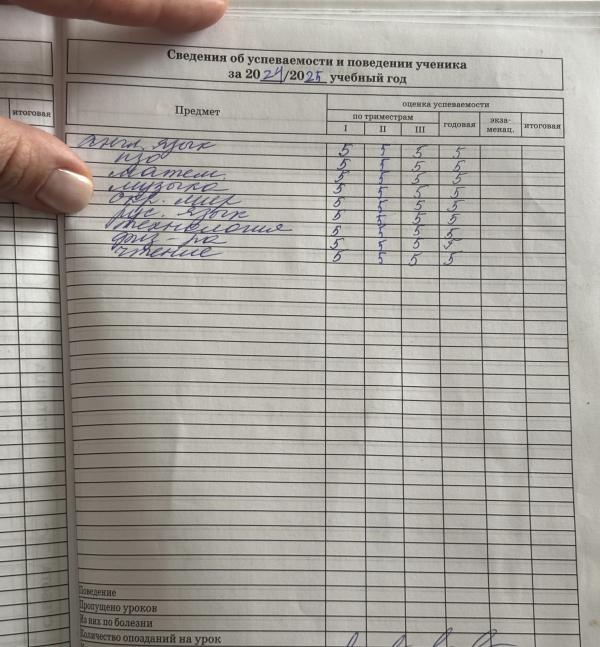 Сведения об успеваемости и поведении ученика
за 2024/2025 учебный год
итоговая
Предмет
оценка успеваемости
по триместрам
I II III годовая экза-менац. итоговая
англ. язык 5 5 5 5
ИЗО 5 5 5 5
матем. 5 5 5 5
музыка 5 5 5 5
окр. мир 5 5 5 5
рус. язык 5 5 5 5
технология 5 5 5 5
физ-ра 5 5 5 5
чтение 5 5 5 5
Поведение
Пропущено уроков
Из них по болезни
Количество опозданий на урок